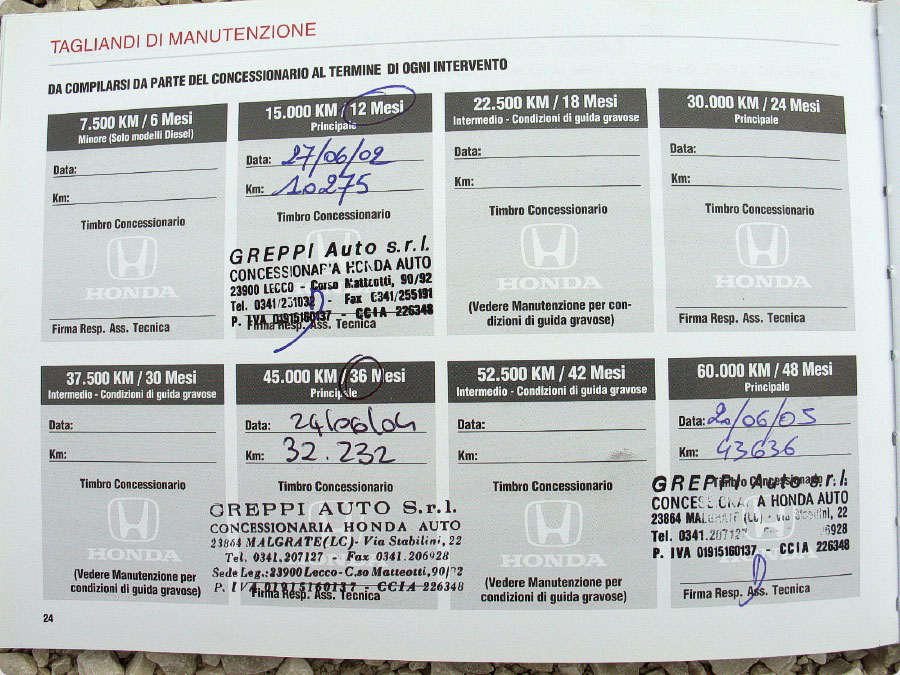 TAGLIANDI DI MANUTENZIONE
DA COMPILARSI DA PARTE DEL CONCESSIONARIO AL TERMINE DI OGNI INTERVENTO
7.500 KM / 6 Mesi
Minore (Solo modelli Diesel)
Data:
Km:
Timbro Concessionario
HONDA
Firma Resp. Ass. Tecnica
15.000 KM / 12 Mesi
Principale
Data: 27/06/02
Km: 10275
Timbro Concessionario
GREPPI Auto s.r.l.
CONCESSIONARIA HONDA AUTO
23900 LECCO - Corso Matteotti, 90/92
Tel. 0341/251032 - Fax 0341/255191
P. IVA 01915160137 - CCIA 226348
Firma Resp. Ass. Tecnica
22.500 KM / 18 Mesi
Intermedio - Condizioni di guida gravose
Data:
Km:
Timbro Concessionario
HONDA
(Vedere Manutenzione per con-
dizioni di guida gravose)
30.000 KM / 24 Mesi
Principale
Data:
Km:
Timbro Concessionario
HONDA
Firma Resp. Ass. Tecnica
37.500 KM / 30 Mesi
Intermedio - Condizioni di guida gravose
Data:
Km:
Timbro Concessionario
HONDA
(Vedere Manutenzione per
condizioni di guida gravose)
45.000 KM / 36 Mesi
Principale
Data: 24/06/04
Km: 32.232
Timbro Concessionario
GREPPI AUTO S.r.l.
CONCESSIONARIA HONDA AUTO
23864 MALGRATE (LC) - Via Stabilini, 22
Tel. 0341.207127 - Fax 0341.206928
Sede Leg.: 23900 Lecco - C.so Matteotti, 90/92
P. IVA 01915160137 - CCIA 226348
Firma Resp. Ass. Tecnica
52.500 KM / 42 Mesi
Intermedio - Condizioni di guida gravose
Data:
Km:
Timbro Concessionario
HONDA
(Vedere Manutenzione per
condizioni di guida gravose)
60.000 KM / 48 Mesi
Principale
Data: 20/06/05
Km: 43636
Timbro Concessionario
GREPPI Auto s.r.l.
CONCESSIONARIA HONDA AUTO
23864 MALGRATE (LC) - Via Stabilini, 22
Tel. 0341.207127 - 6928
P. IVA 01915160137 - CCIA 226348
Firma Resp. Ass. Tecnica
24